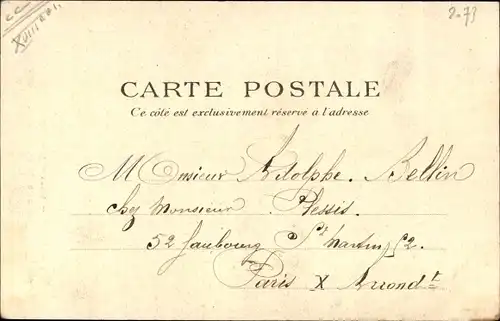 CC
XVIII
2-73
CARTE POSTALE
Ce côté est exclusivement réservé à l'adresse
Monsieur Adolphe. Bellin
chez Monsieur Plessis.
52 faubourg St Martin 52.
Paris X Arrondt